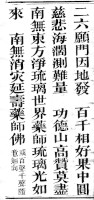 二六願門因地發　百千相好果中圓
慈悲海濶測難量　功德山高贊莫盡
南無東方淨琉璃世界藥師琉璃光如
來　南無消灾延壽藥師佛
或百聲千聲隨